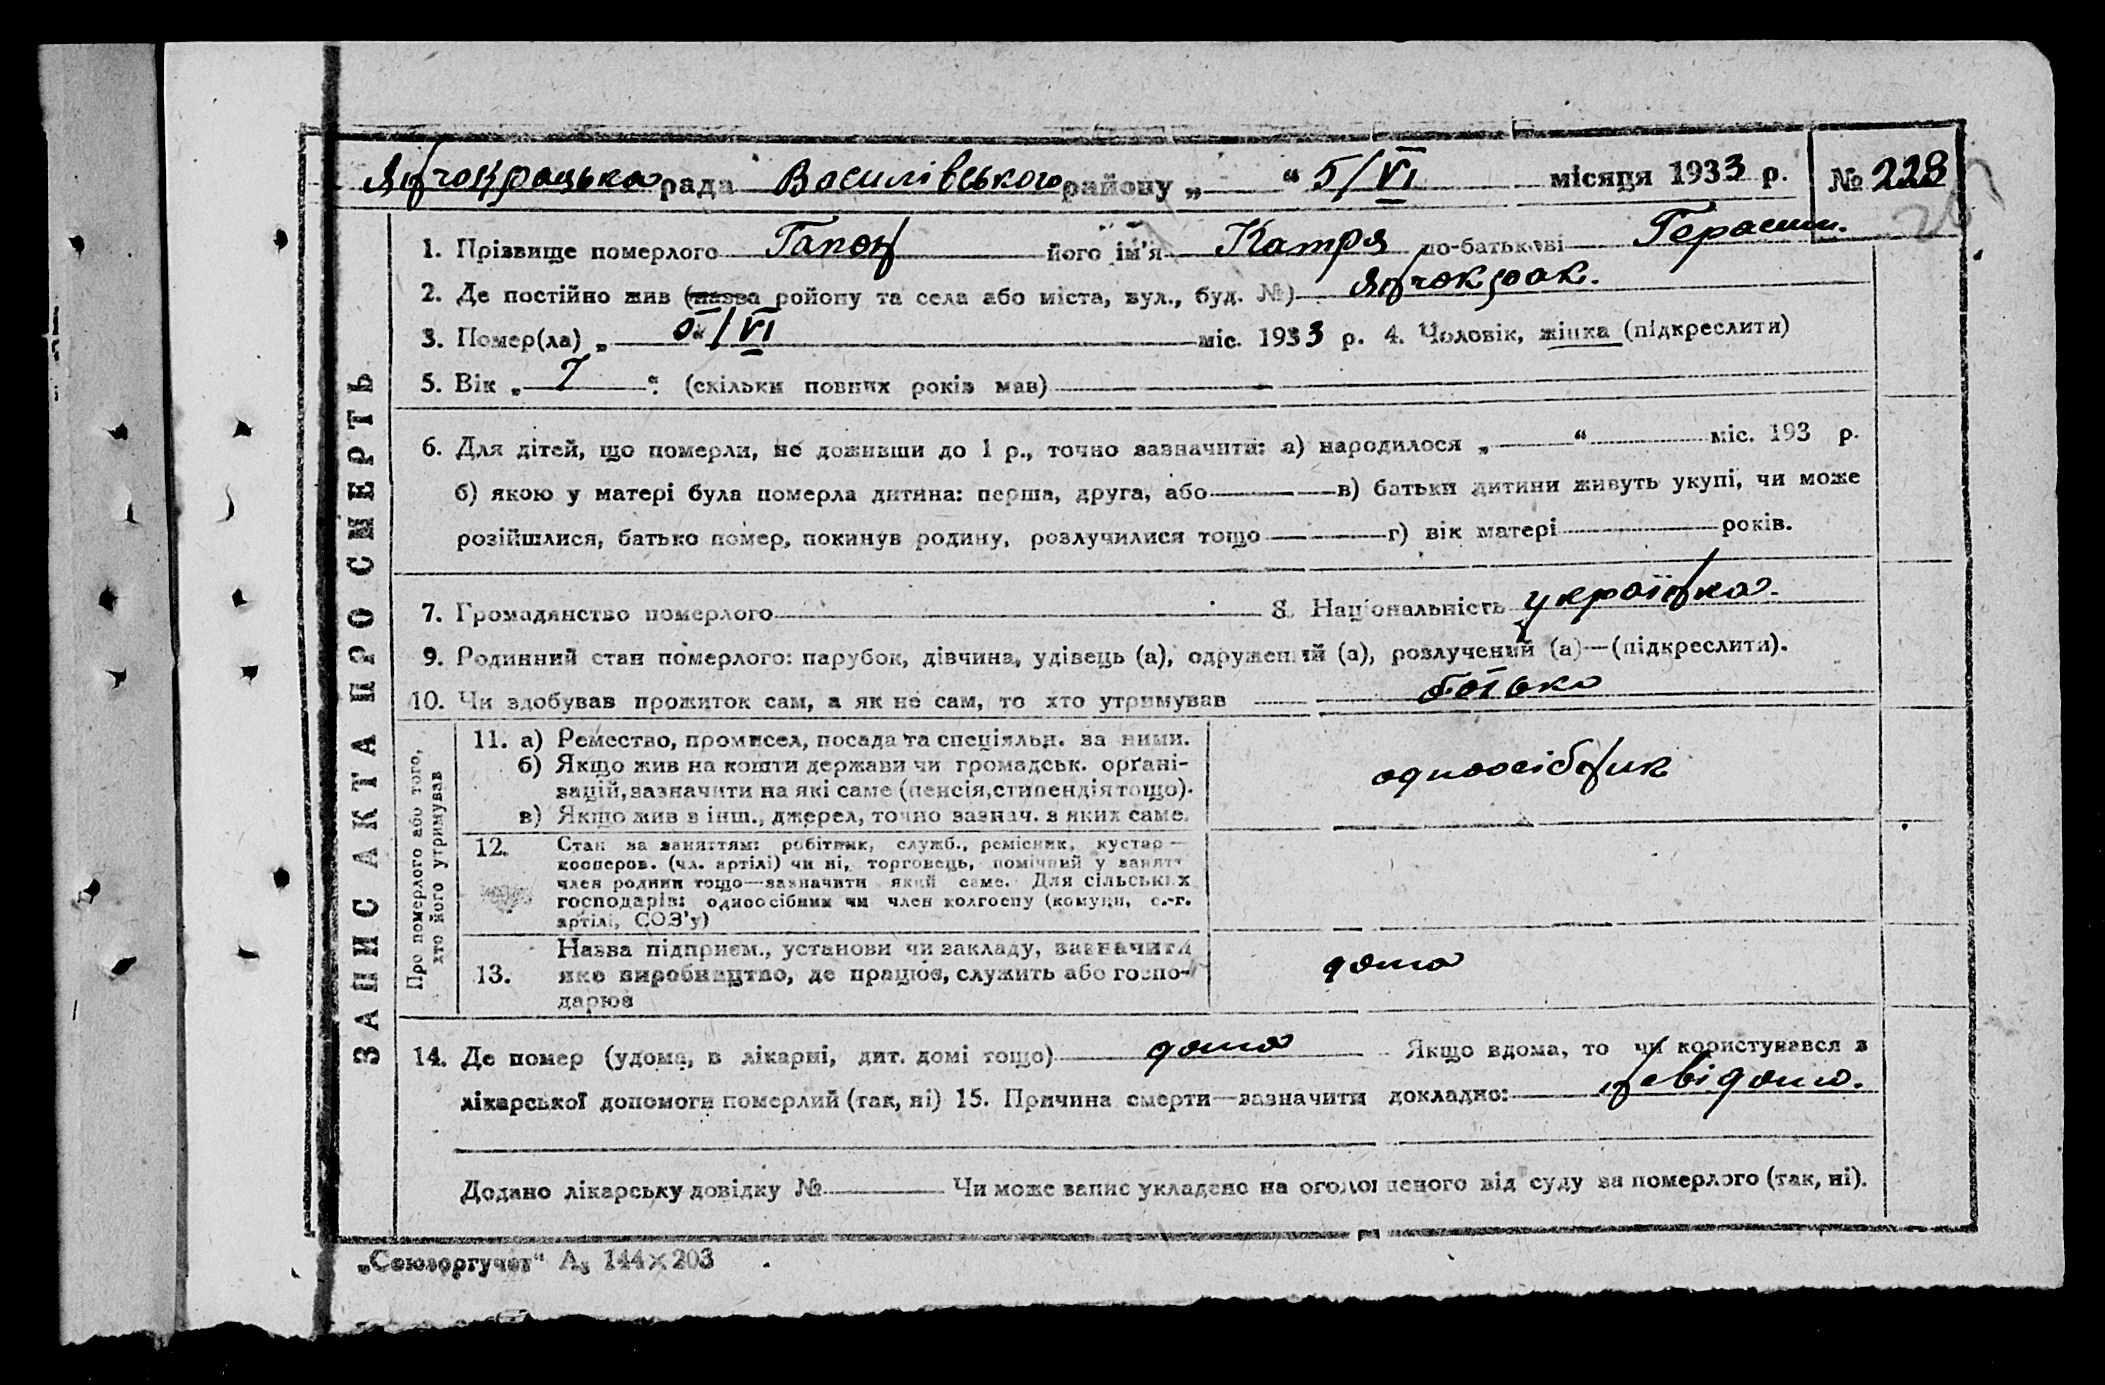 Янчокрацька рада Василівського району „ “ 5/VI місяця 1933 р. № 228
1. Прізвище померлого Гапон його ім'я Катря по-батькові Герасим.
2. Де постійно жив (назва району та села або міста, вул., буд. №) Янчокрак.
3. Помер(ла) „ 5/VI міс. 1933 р. 4. Чоловік, жінка (підкреслити)
5. Вік „ 7 “: (скільки повних років мав)
6. Для дітей, що померли, не доживши до 1 р., точно зазначити: а) народилося „ “ міс. 193 р.
б) якою у матері була померла дитина: перша, друга, або в) батьки дитини живуть укупі, чи може
розійшлися, батько помер, покинув родину, розлучилися тощо г) вік матері років.
7. Громадянство померлого 8. Національність українка.
9. Родинний стан померлого: парубок, дівчина, удівець (а), одружений (а), розлучений (а)—(підкреслити).
10. Чи здобував прожиток сам, а як не сам, то хто утримував батько
ЗАПИС АКТА ПРО СМЕРТЬ
Про померлого або того,
хто його утримував
11. а) Ремество, промисел, посада та спеціяльн. за ними.
б) Якщо жив на кошти держави чи громадськ. орґані-
зацій, зазначити на які саме (пенсія, стипендія тощо).
в) Якщо жив з інш., джерел, точно зазнач. з яких саме.
одноосібник
12. Стан за заняттям: робітник, служб., ремісник, кустар—
кооперов. (чл. артілі) чи ні, торговець, помічний у занятт
член родини тощо—зазначити який саме. Для сільських
господарів: одноосібник чи член колгоспу (комуни, с.-г.
артілі, СОЗ'у)
13. Назва підприєм., установи чи закладу, зазначити
яке виробництво, де працює, служить або госпо-
дарює
дома
14. Де помер (удома, в лікарні, дит. домі тощо) дома Якщо вдома, то чи користувався з
лікарської допомоги померлий (так, ні) 15. Причина смерти—зазначити докладно: невідома.
Додано лікарську довідку № Чи може запис укладено на оголошеного від суду за померлого (так, ні).
„Союзоргучет“ А₅ 144×203